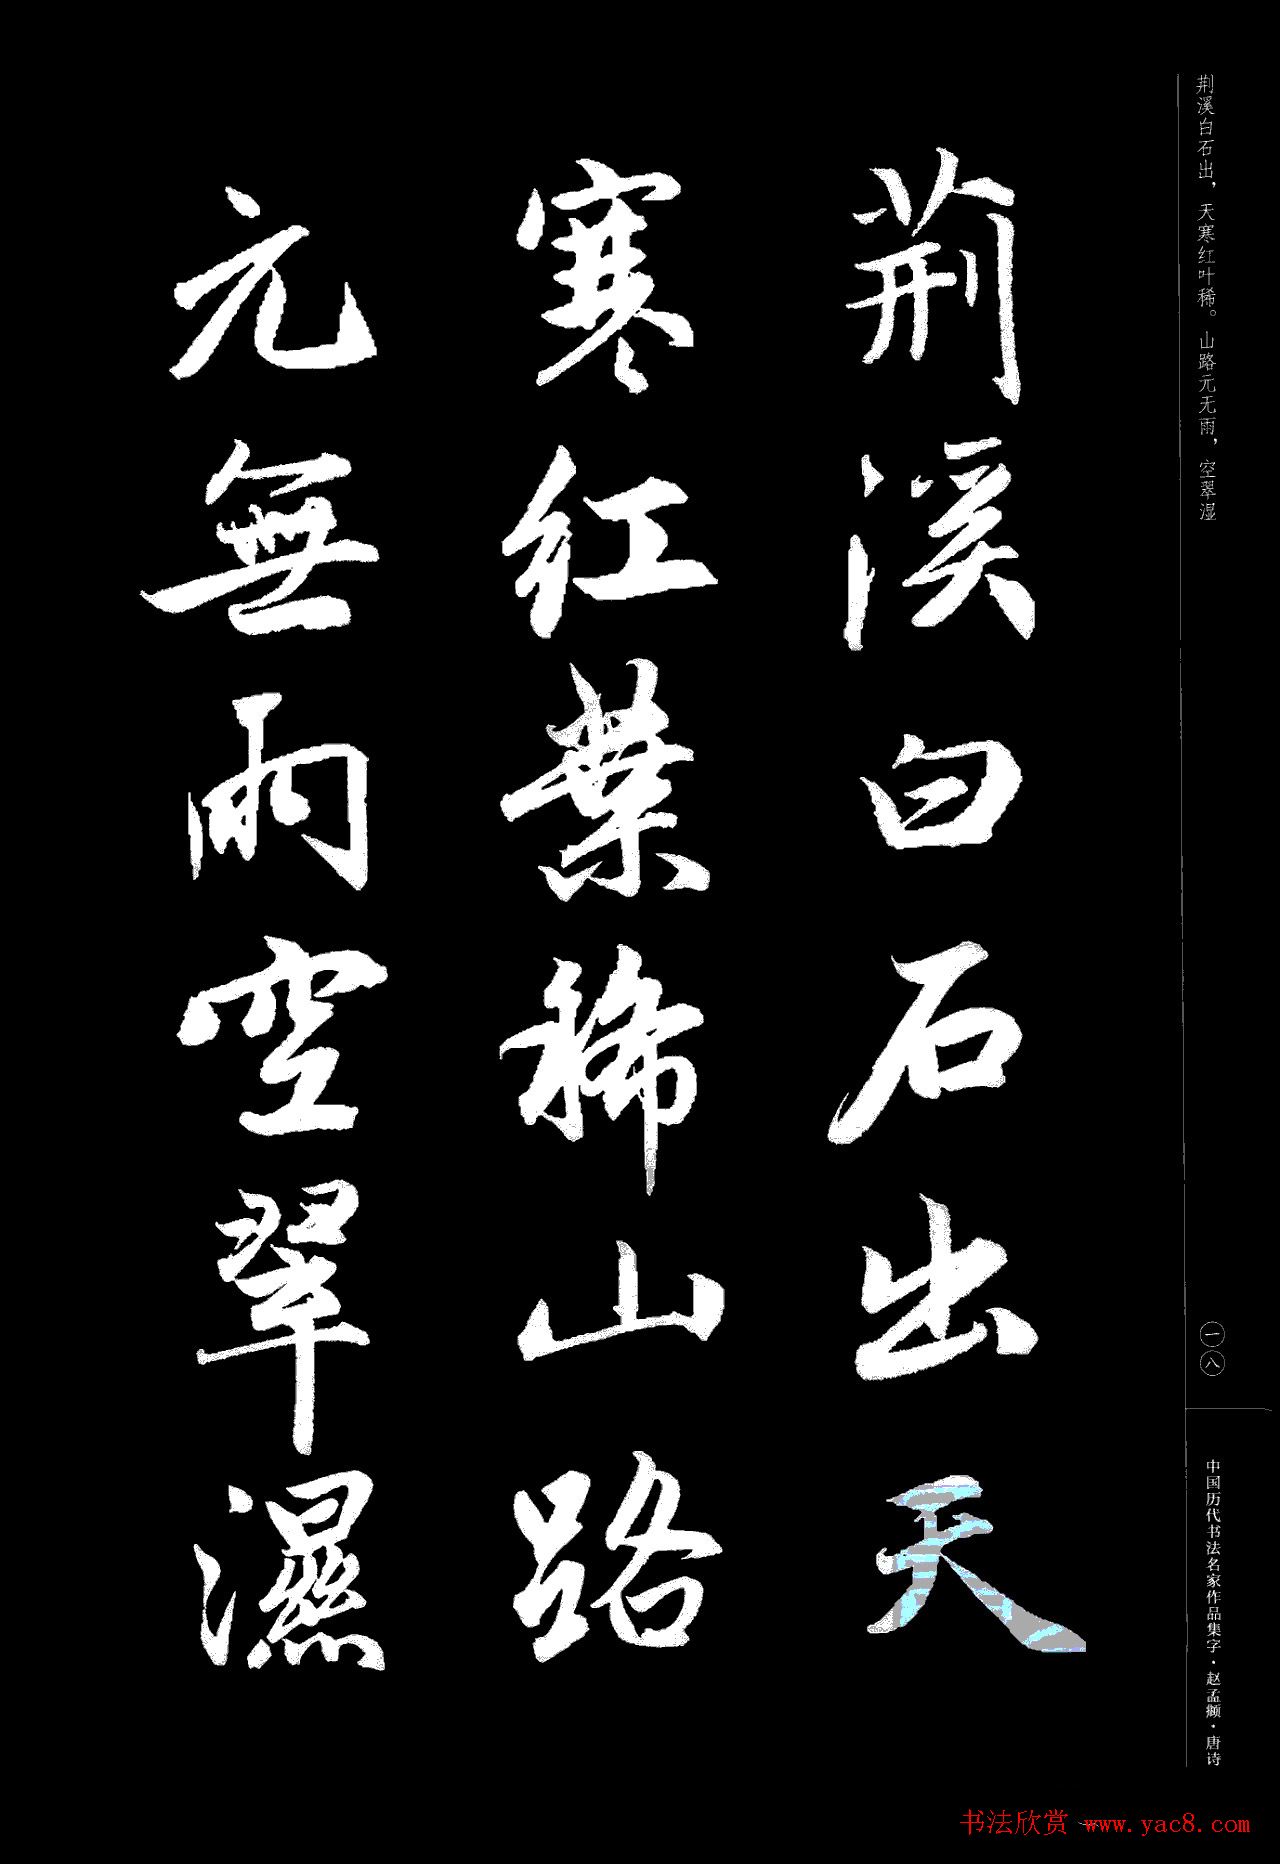 荆溪白石出，天寒红叶稀。山路元无雨，空翠湿
荊溪白石出天
寒紅葉稀山路
元無雨空翠濕
一八
中国历代书法名家作品集字·赵孟頫·唐诗
书法欣赏 www.yac8.com